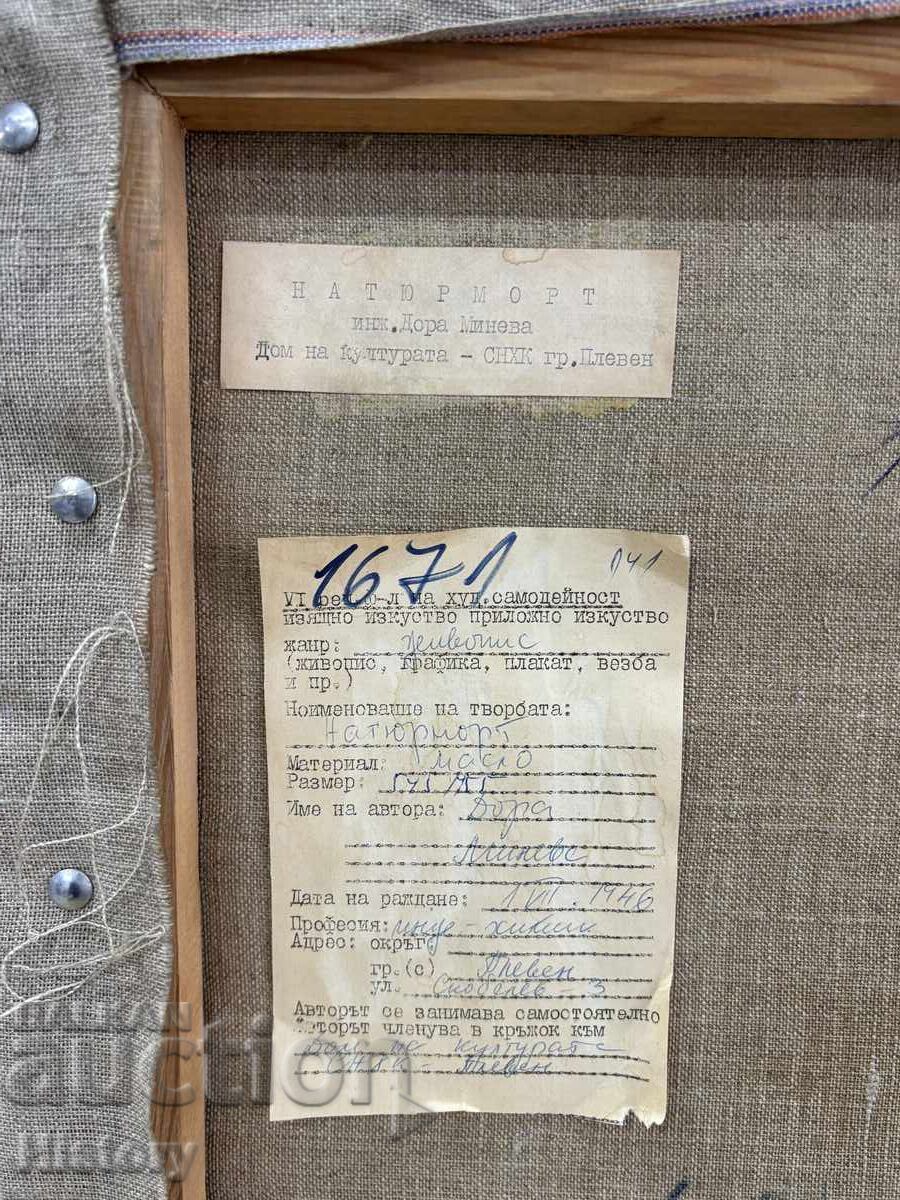 НАТЮРМОРТ
инж.Дора Минева
Дом на културата - СНХК гр.Плевен
1671
141
VI на худ.самодейност
изящно изкуство приложно изкуство
жанр: живопис
(живопис, графика, плакат, везба
и пр.)
Ноименование на творбата:
Натюрморт
Материал: масло
Размер:
Име на автора: Дора
Минева
Дата на раждане: 1 VII. 1946
Професия: инж - химик
Адрес: окръг
гр.(с) Плевен
ул. Скобелев - 3
Авторът се занимава самостоятелно
Авторът членува в кръжок към
Дом на културата
СНХК - Плевен
BALKAN
auction
History